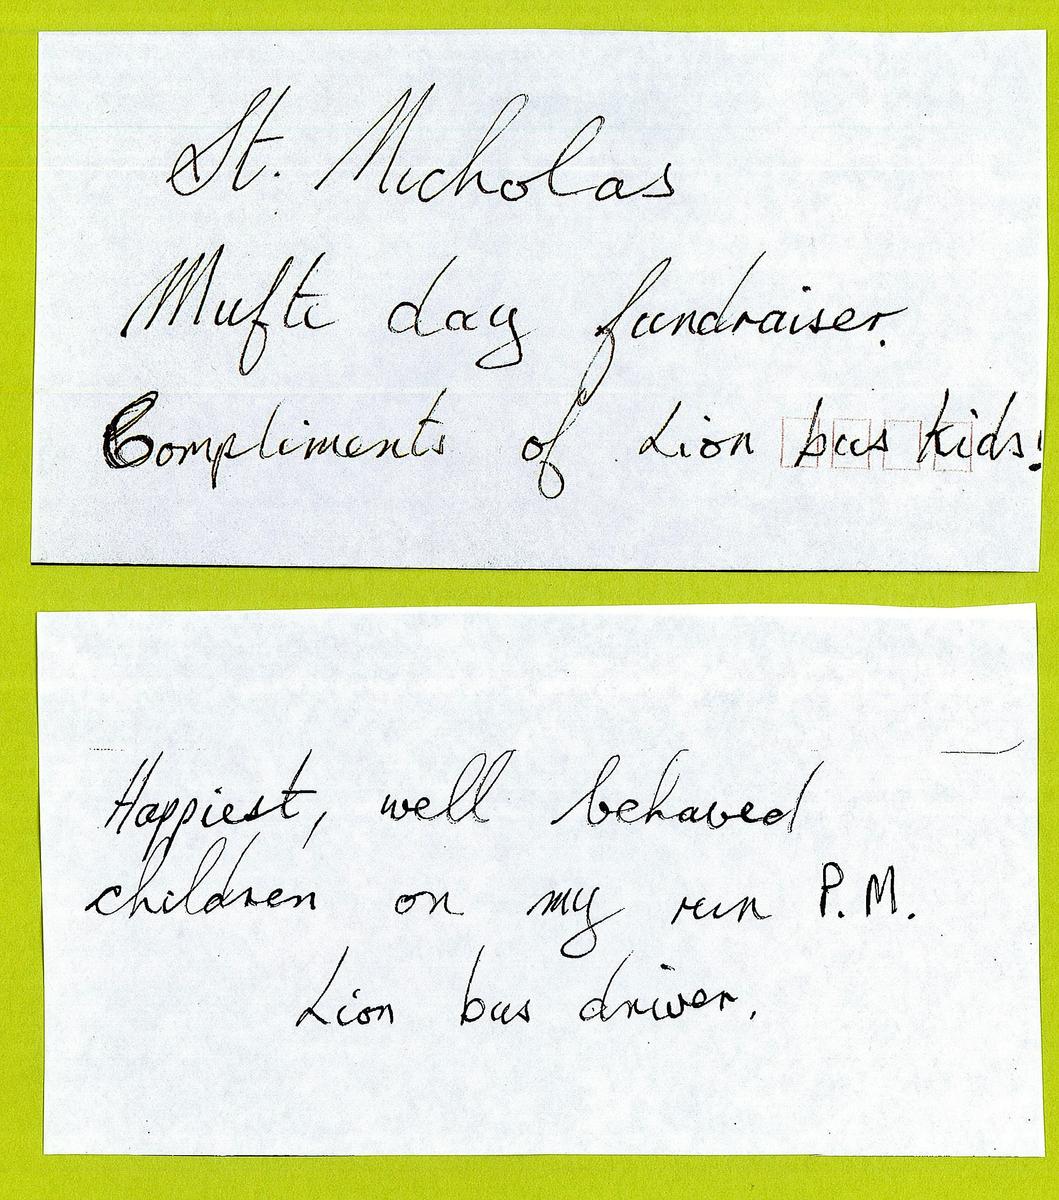 St. Nicholas
Mufti day fundraiser.
Compliments of Lion bus kids!
Happiest, well behaved
children on my run P.M.
Lion bus driver.